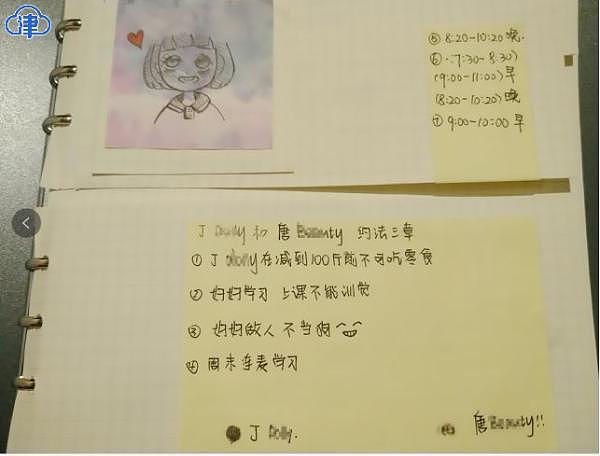 津
⑤ 8:20-10:20 晚.
⑥ .:7:30-8:30)
(9:00-11:00) 早
(8:20-10:20) 晚
⑦ 9:00-10:00 早
J 和 唐 Beauty 约法三章
① J 在减到100斤前不可吃零食
② 好好学习 上课不能训觉
③ 好好做人 不当狗
④ 周末连麦学习
J Dolly.
唐 Beauty!!